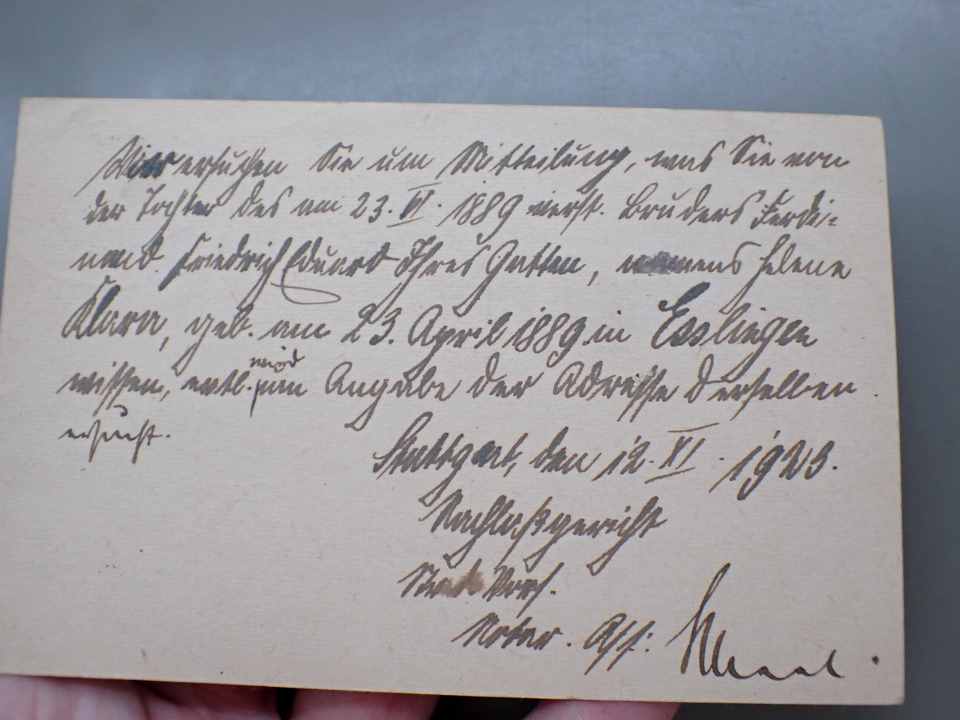 Wir ersuchen Sie um Mitteilung, was Sie von
der Tochter des am 23. VI. 1889 verst. Bruders Ferdi-
nand Friedrich Eduard Ihres Gatten, namens Helene
Klara, geb. am 23. April 1889 in Esslingen
wissen, evtl. wird um Angabe der Adresse derselben
ersucht.
Stuttgart, den 12. XI. 1923.
Nachlaßgericht
Vors.
Notar. Ass.